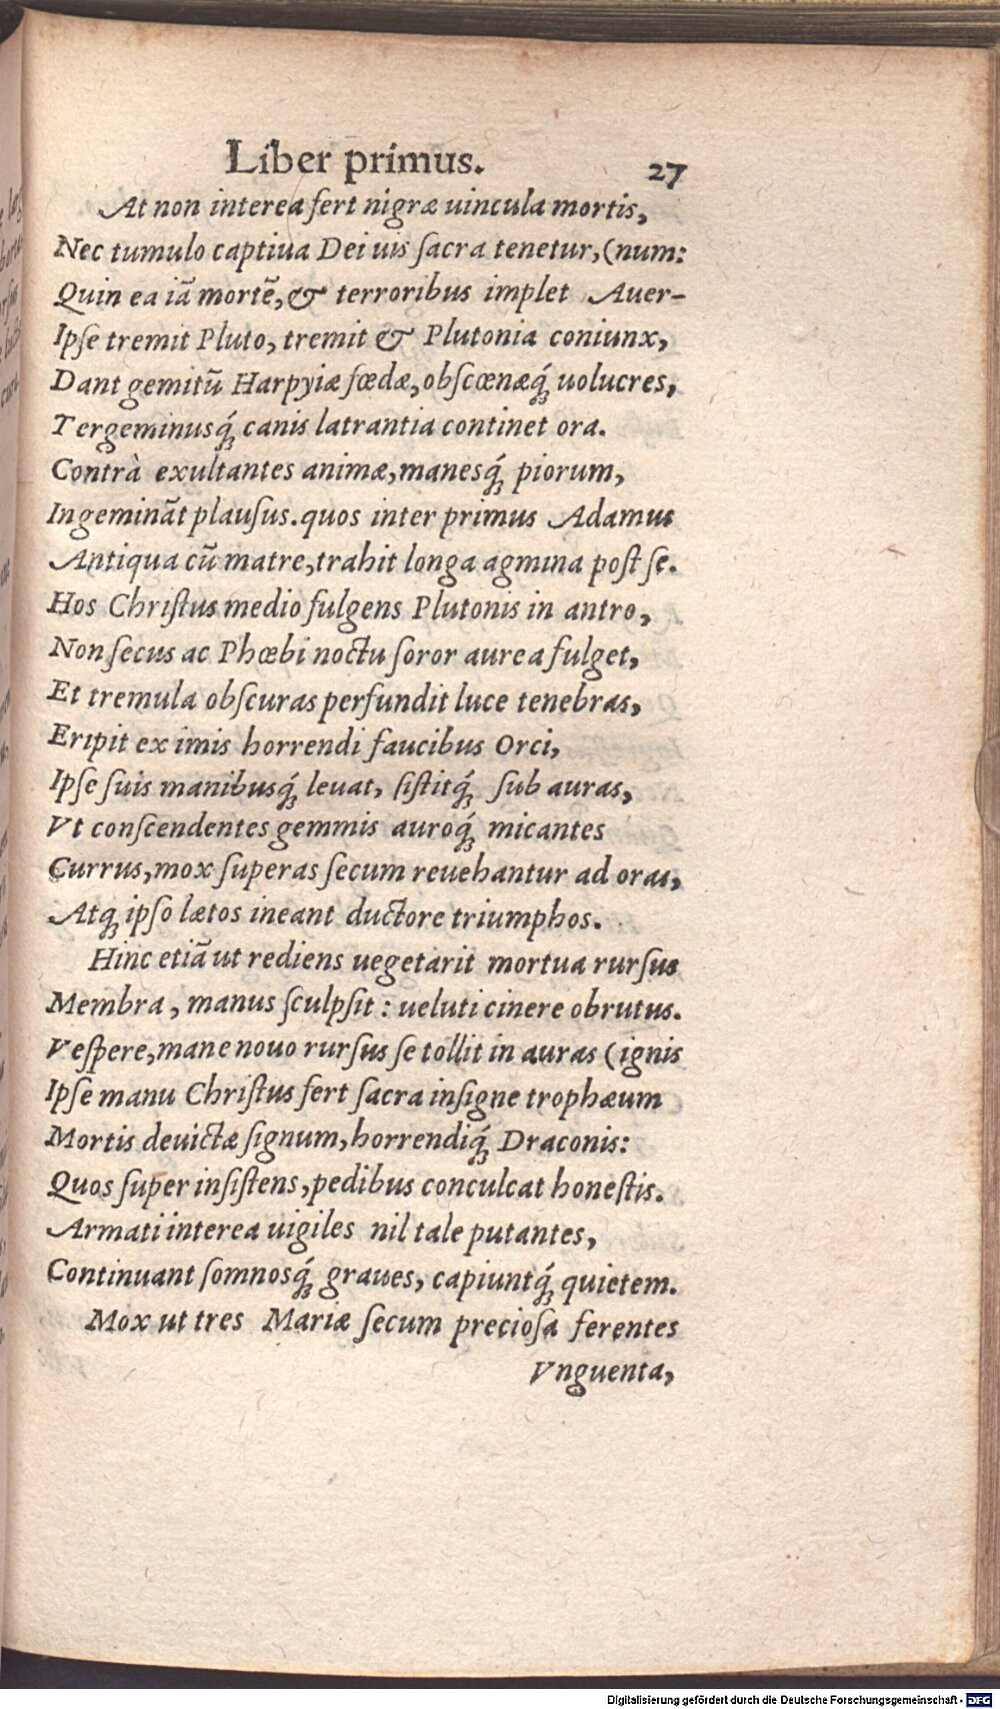 Liber primus. 27
At non interea fert nigræ uincula mortis,
Nec tumulo captiua Dei uis ſacra tenetur, (num:
Quin ea iā mortē, & terroribus implet Auer-
Ipſe tremit Pluto, tremit & Plutonia coniunx,
Dant gemitū Harpyiæ fœdæ, obſcœnæq́; uolucres,
Tergeminusq́; canis latrantia continet ora.
Contrà exultantes animæ, manesq́; piorum,
Ingeminãt plauſus. quos inter primus Adamus
Antiqua cū matre, trahit longa agmina poſt ſe.
Hos Chriſtus medio fulgens Plutonis in antro,
Non ſecus ac Phœbi noctu ſoror aurea fulget,
Et tremula obſcuras perfundit luce tenebras,
Eripit ex imis horrendi faucibus Orci,
Ipſe ſuis manibusq́; leuat, ſiſtitq́; ſub auras,
Vt conſcendentes gemmis auroq́; micantes
Currus, mox ſuperas ſecum reuehantur ad oras,
Atq; ipſo lætos ineant ductore triumphos.
Hinc etiā ut rediens uegetarit mortua rurſus
Membra, manus ſculpſit: ueluti cinere obrutus.
Veſpere, mane nouo rurſus ſe tollit in auras (ignis
Ipſe manu Chriſtus fert ſacra inſigne trophæum
Mortis deuictæ ſignum, horrendiq́; Draconis:
Quos ſuper inſiſtens, pedibus conculcat honeſtis.
Armati interea uigiles nil tale putantes,
Continuant ſomnosq́; graues, capiuntq́; quietem.
Mox ut tres Mariæ ſecum precioſa ferentes
Vnguenta,
Digitalisierung gefördert durch die Deutsche Forschungsgemeinschaft - DFG